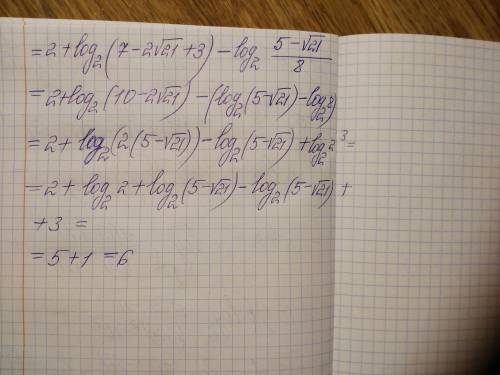 = 2 + log₂(7 - 2√21 + 3) - log₂ (5-√21)/8
= 2 + log₂(10 - 2√21) - (log₂(5-√21) - log₂8)
= 2 + log₂(2(5-√21)) - log₂(5-√21) + log₂2³ =
= 2 + log₂2 + log₂(5-√21) - log₂(5-√21) +
+ 3 =
= 5 + 1 = 6